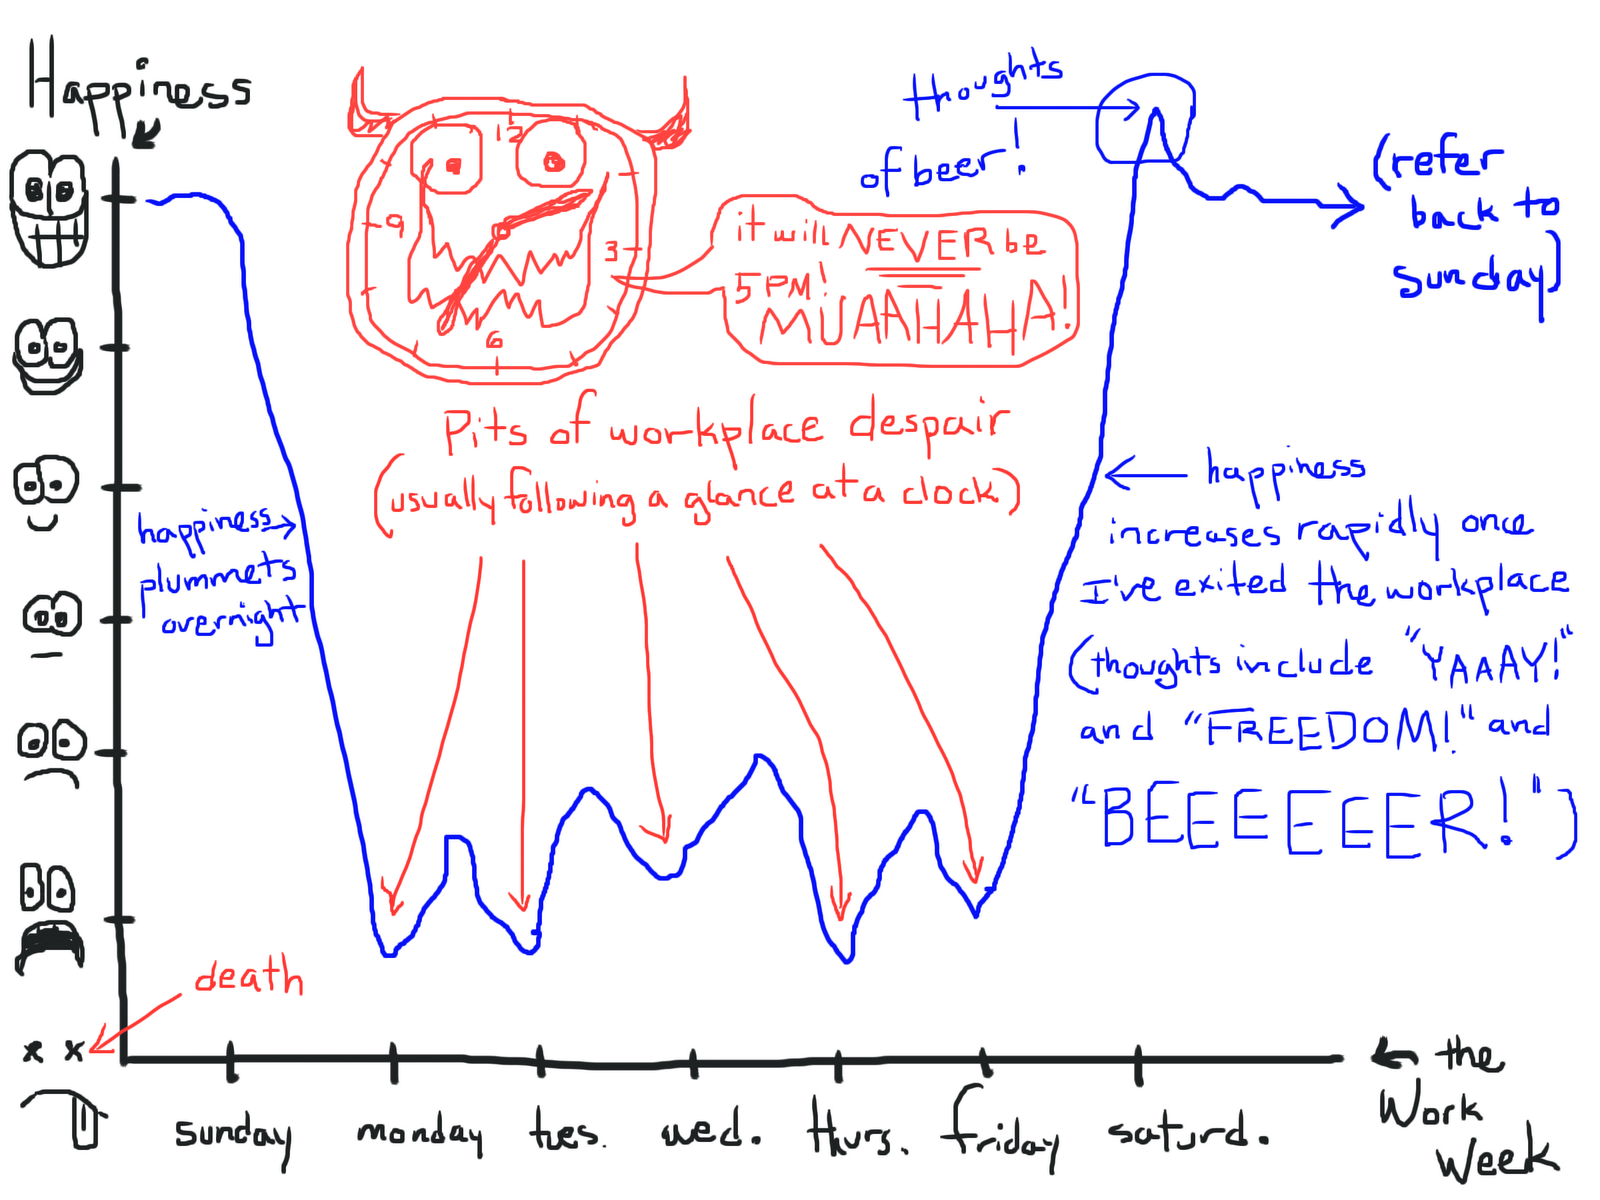 Happiness
thoughts
of beer!
(refer
back to
sunday)
12
9
3
6
it will NEVER be
5 PM!
MUAAHAHA!
Pits of workplace despair
(usually following a glance at a clock)
happiness
plummets
overnight
happiness
increases rapidly once
I've exited the workplace
(thoughts include "YAAAY!"
and "FREEDOM!" and
"BEEEEEER!")
death
x x
sunday monday tues. wed. thurs. friday saturd.
the
Work
Week